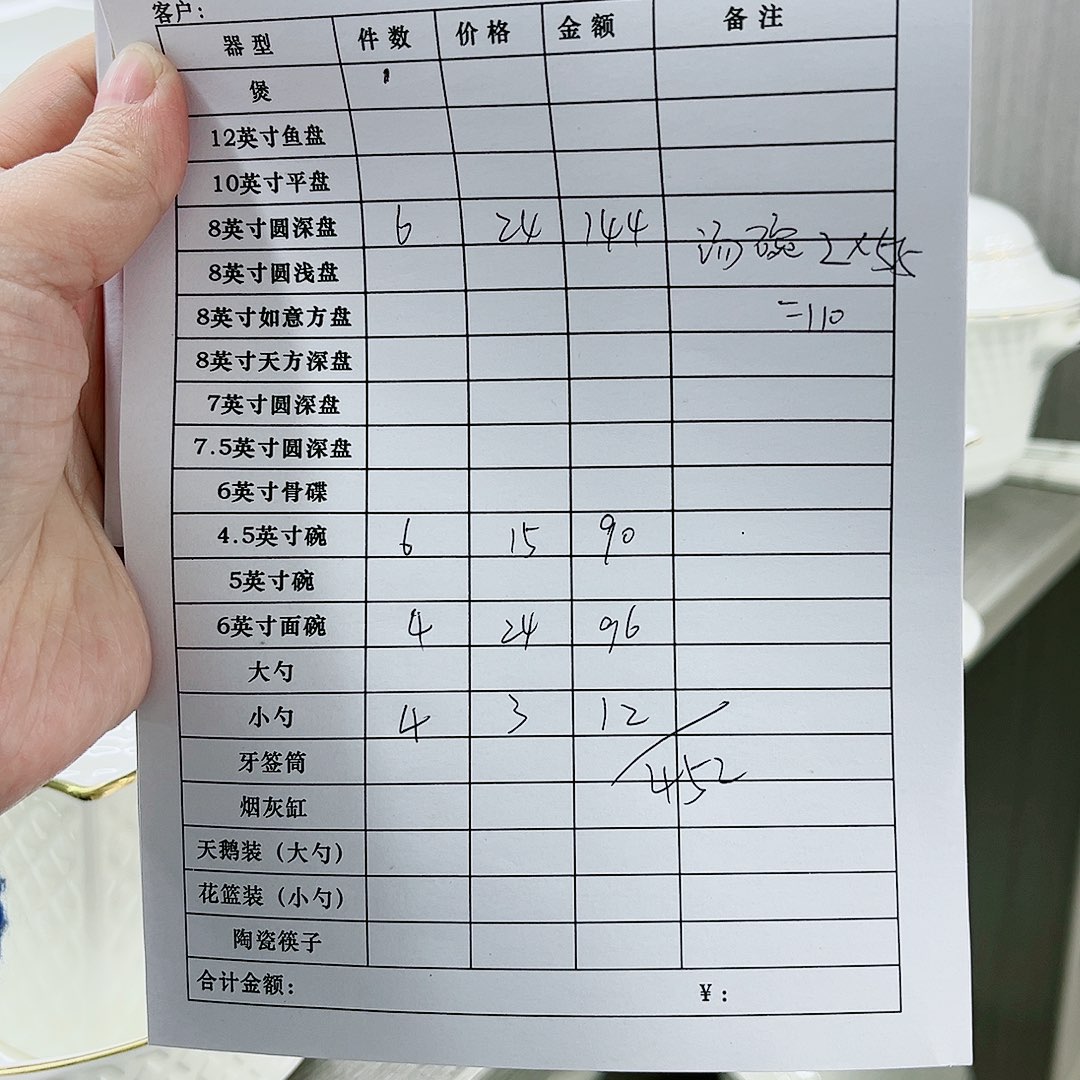 客户：
器型 件数 价格 金额 备注
煲
12英寸鱼盘
10英寸平盘
8英寸圆深盘 6 24 144 汤碗 2×55
8英寸圆浅盘
8英寸如意方盘 =110
8英寸天方深盘
7英寸圆深盘
7.5英寸圆深盘
6英寸骨碟
4.5英寸碗 6 15 90
5英寸碗
6英寸面碗 4 24 96
大勺
小勺 4 3 12
牙签筒 452
烟灰缸
天鹅装（大勺）
花篮装（小勺）
陶瓷筷子
合计金额： ¥：